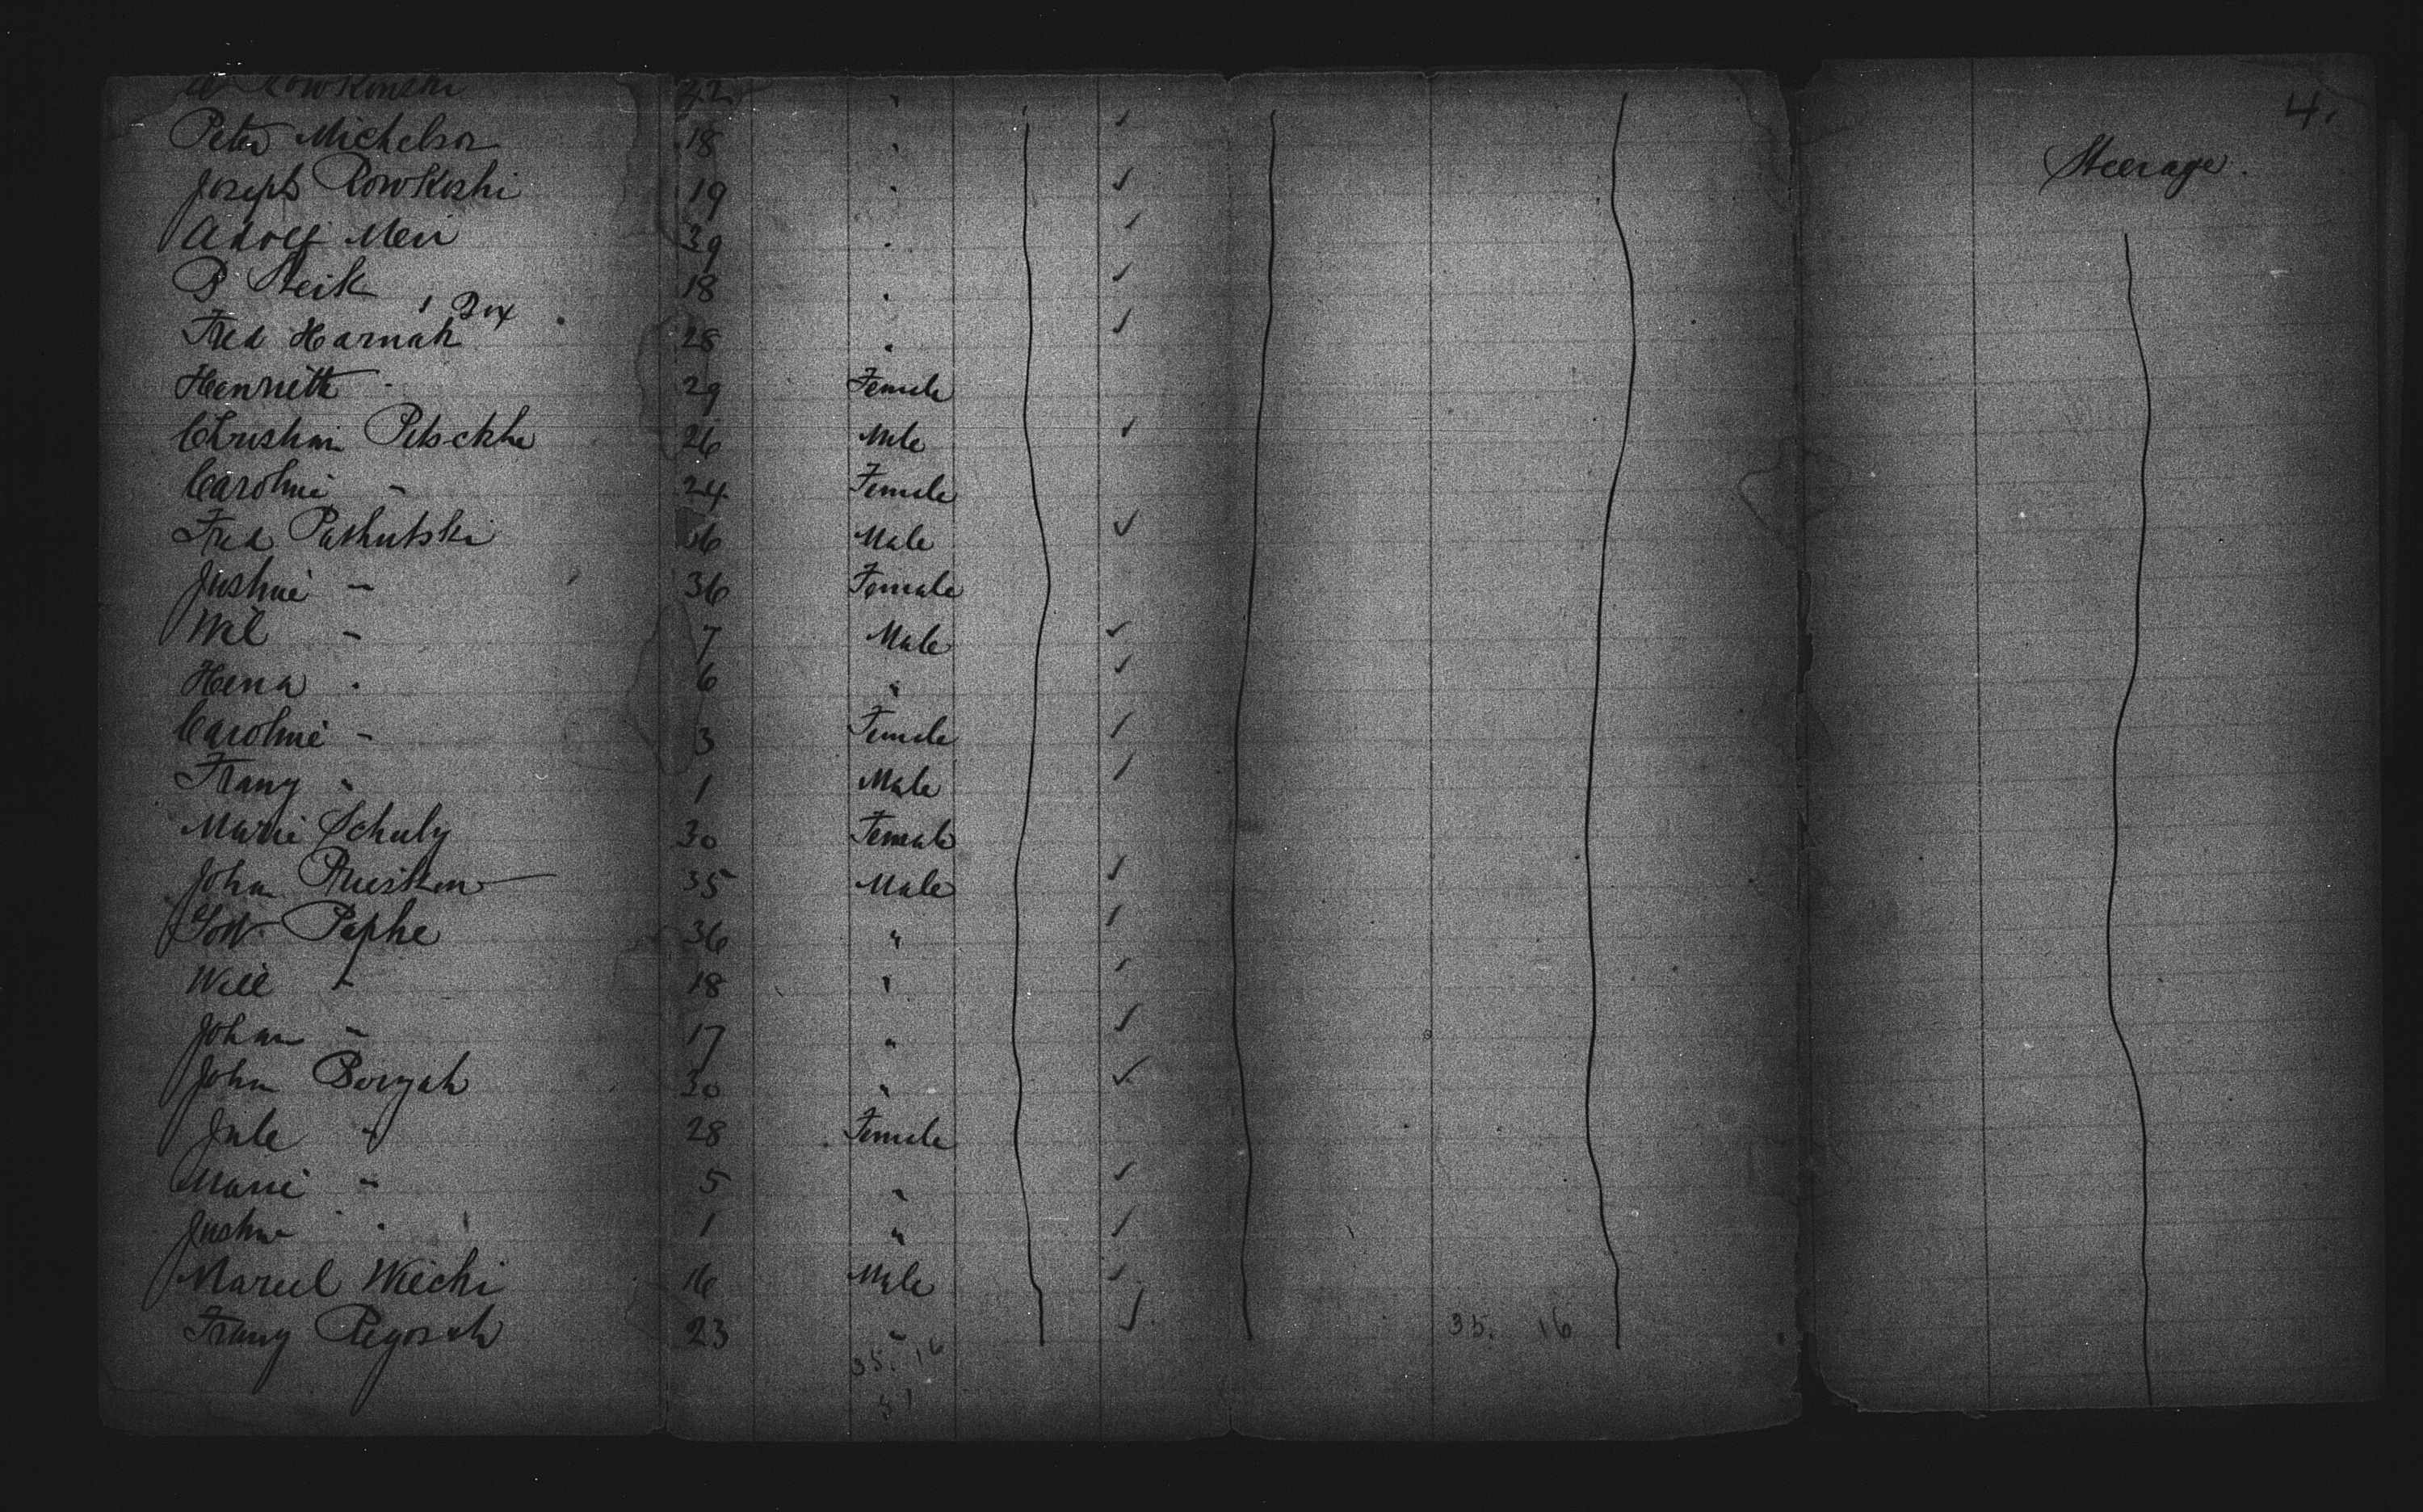 4.
Steerage.
42 "
Peter Michelson 18 "
Joseph Rowkoski 19 "
Adolf Meir 39 "
B Steik 18 "
1 Box
Fred Harnak 28 "
Henriette " 29 Female
Christian Petschke 26 Male
Caroline " 24 Female
Fred Pashutski 36 Male
Justine " 36 Female
Wil " 7 Male
Hena " 6 "
Caroline " 3 Female
Franz " 1 Male
Marie Schulz 30 Female
Johan 35 Male
Gott Paphe 36 "
Will " 18 "
Johan " 17 "
John Boryah 30 "
Jule " 28 Female
Marie " 5 "
Justine " 1 "
Marcel Wiecki 16 Male
Franz 23 "
35. 16 35. 16
51